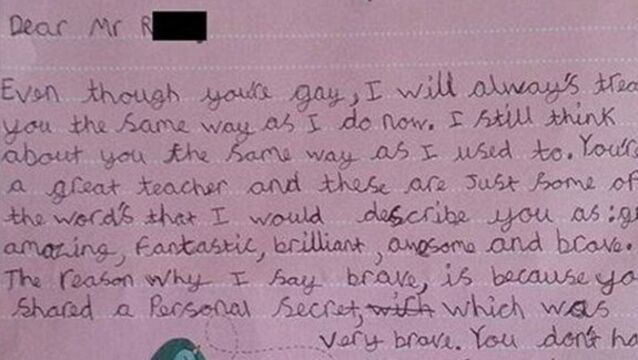 Dear Mr R
Even though you're gay, I will always's trea
you the same way as I do now. I still think
about you the same way as I used to. You're
a great teacher and these are just some of
the word's that I would describe you as: g
amazing, fantastic, brilliant, awsome and brave.
The reason why I say brave, is because yo
shared a Personal secret, with which was
very brave. You don't ha